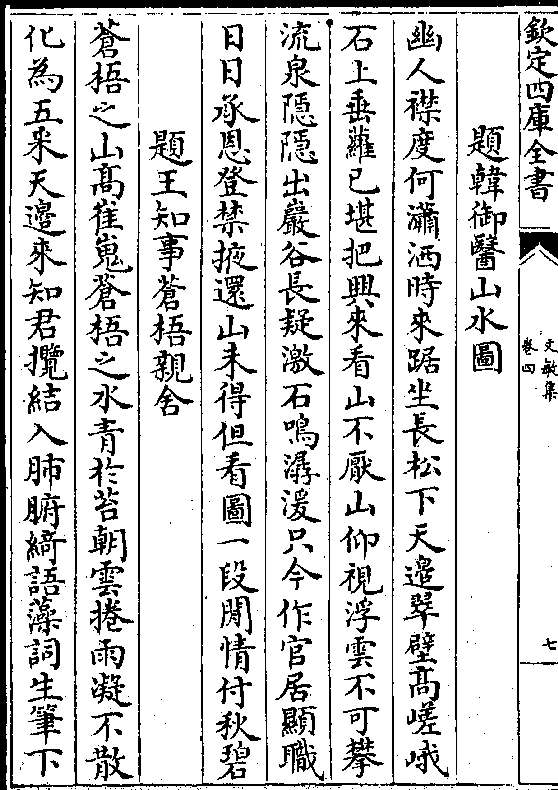 欽定四庫全書
文敏集
卷四
七
題韓御醫山水圖
幽人襟度何瀟洒時來踞坐長松下天邉翠壁髙嵯峨
石上垂蘿已堪把興來看山不厭山仰視浮雲不可攀
流泉隱隱出巖谷長疑激石鳴潺湲只今作官居顯職
日日承恩登禁掖還山未得但看圖一段閒情付秋碧
題王知事蒼梧親舍
蒼梧之山髙崔嵬蒼梧之水青於苔朝雲捲雨凝不散
化為五采天邉來知君攬結入肺腑綺語藻詞生筆下